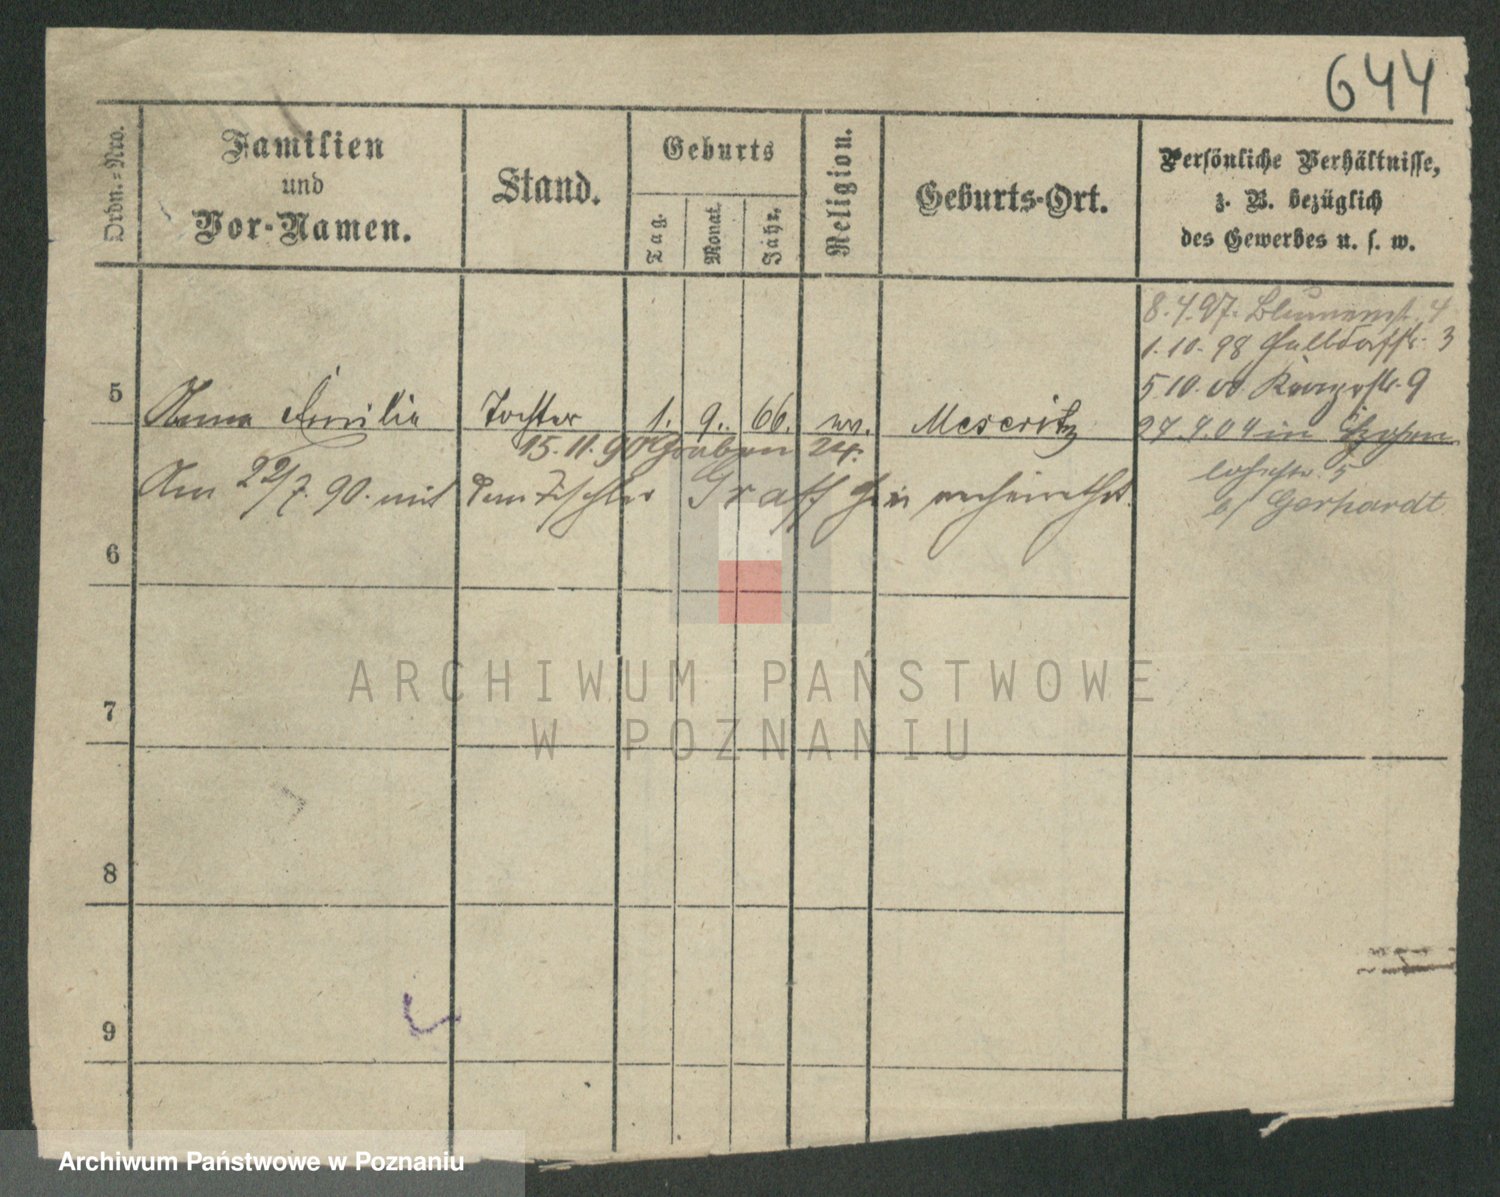 644
Ordn.=Nro.
Familien
und
Vor-Namen.
Stand.
Geburts
Tag.
Monat.
Jahr.
Religion.
Geburts-Ort.
Persönliche Verhältnisse,
z. B. bezüglich
des Gewerbes u. s. w.
8.4.97. Blumenstr. 4
1.10.98 3
5 10.00 9
5 Anna Emilie Tochter 1. 9. 66. Meseritz
27.9.04 in
15.11.90 Graben 24.
Am 22/7.90. mit dem Tischler Graff hier verheirathet.
5
b/ Gerhardt
6
7
8
9
ARCHIWUM PAŃSTWOWE
W POZNANIU
Archiwum Państwowe w Poznaniu